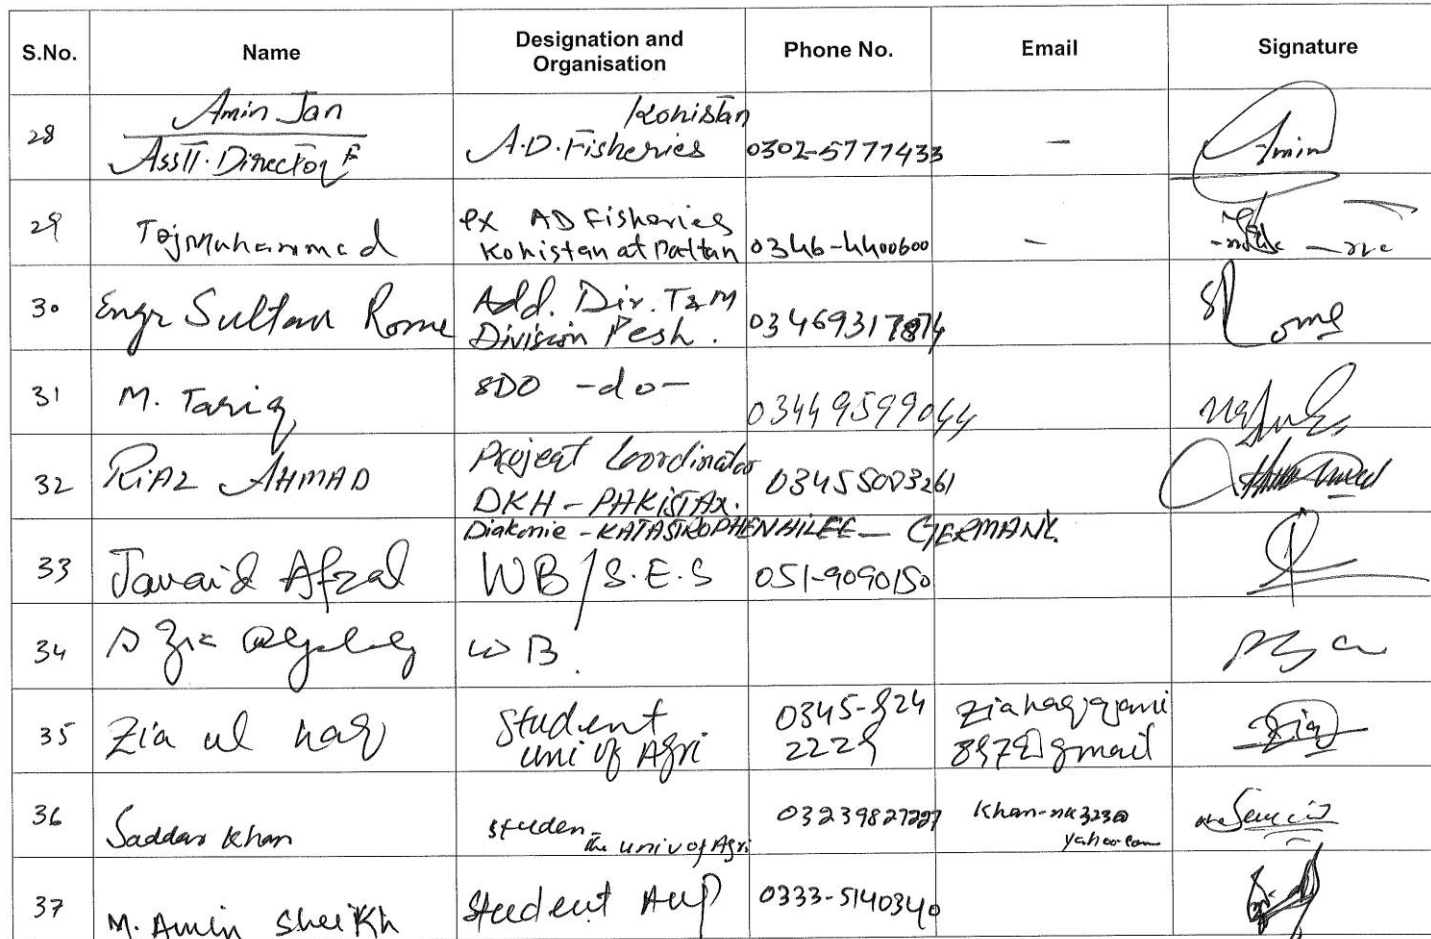 S.No. Name Designation and Organisation Phone No. Email Signature
28 Amin Jan Kohistan
Asstt. Director F A.D. Fisheries 0302-5777433 - Amin
29 Taj Muhammad ex AD Fisheries
Kohistan at Pattan 0346-4400600 -
30 Engr Sultan Rome Add. Dir. T&M
Division Pesh. 03469317874 Rome
31 M. Tariq SDO -do- 03449599044
32 RIAZ AHMAD Project Coordinator
DKH - PAKISTAN. 03455003261
Diakonie - KATASTROPHENHILFE - GERMANY.
33 Javaid Afzal WB/S.E.S 051-9090150
34 WB.
35 Zia ul haq Student 0345-924 ziahaqqani
uni of Agri 2229 8972@gmail Zia
36 Saddar Khan studen 03239827227 Khan-nk323@
the univ of Agri yahoo.com
37 M. Amin Sheikh Student AUP 0333-5140340